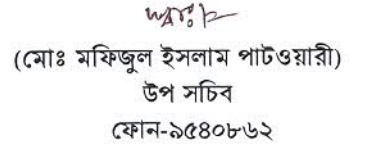 (মোঃ মফিজুল ইসলাম পাটওয়ারী)
উপ সচিব
ফোন-৯৫৪০৮৬২